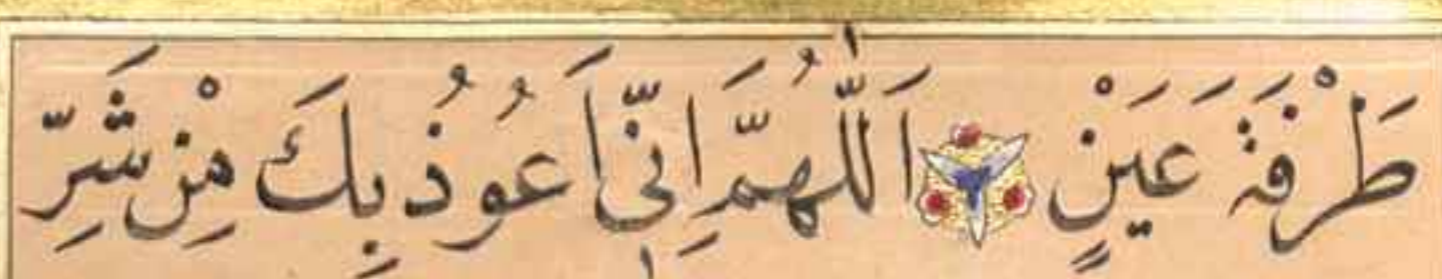 طَرْفَةَ عَيْنٍ اَللّٰهُمَّ اِنِّى اَعُوذُ بِكَ مِنْ شَرِّ